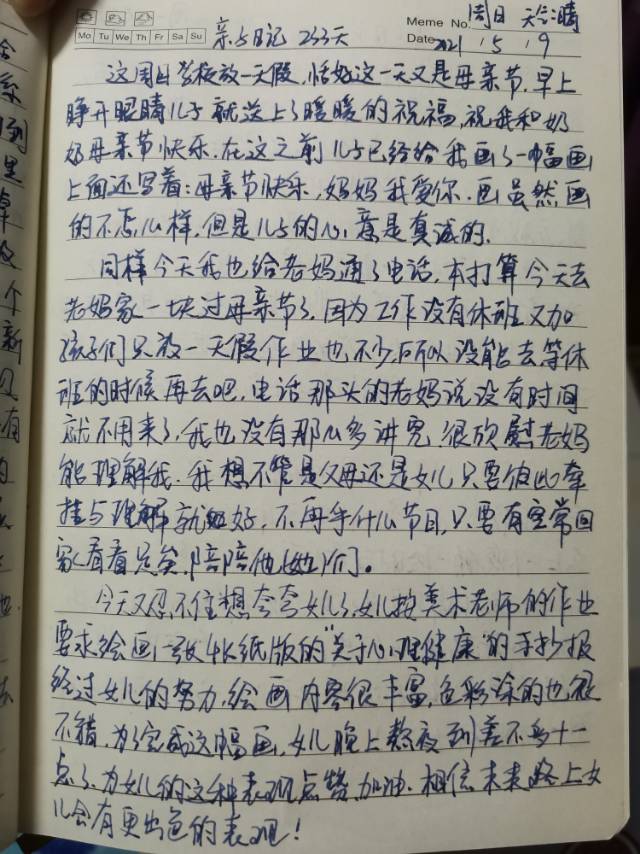 Mo Tu We Th Fr Sa Su
亲与日记 233天
Memo No. 周日 天气:晴
Date 2021 / 5 / 9
这周日学校放一天假,恰好这一天又是母亲节.早上
睁开眼睛儿子就送上了暖暖的祝福,祝我和奶
奶母亲节快乐.在这之前儿子已经给我画了一幅画
上面还写着:母亲节快乐,妈妈我爱你.画虽然画
的不怎么样,但是儿子的心意是真诚的.
同样今天我也给老妈通了电话,本打算今天去
老妈家一块过母亲节了,因为工作没有休班又加
孩子们只放一天假作业也不少,所以没能去,等休
班的时候再去吧,电话那头的老妈说没有时间
就不用来了,我也没有那么多讲究,很欣慰老妈
能理解我.我想不管是父母还是女儿只要彼此牵
挂与理解就好,不再乎什么节日,只要有空常回
家看看足矣,陪陪他(她)们。
今天又忍不住想夸夸女儿了,女儿按美术老师的作业
要求绘画一张4K纸版的"关于心理健康"的手抄报
经过女儿的努力,绘画内容很丰富,色彩涂的也很
不错,为了完成这幅画,女儿晚上熬夜到差不多十一
点了.为女儿的这种表现点赞,加油.相信未来路上女
儿会有更出色的表现!